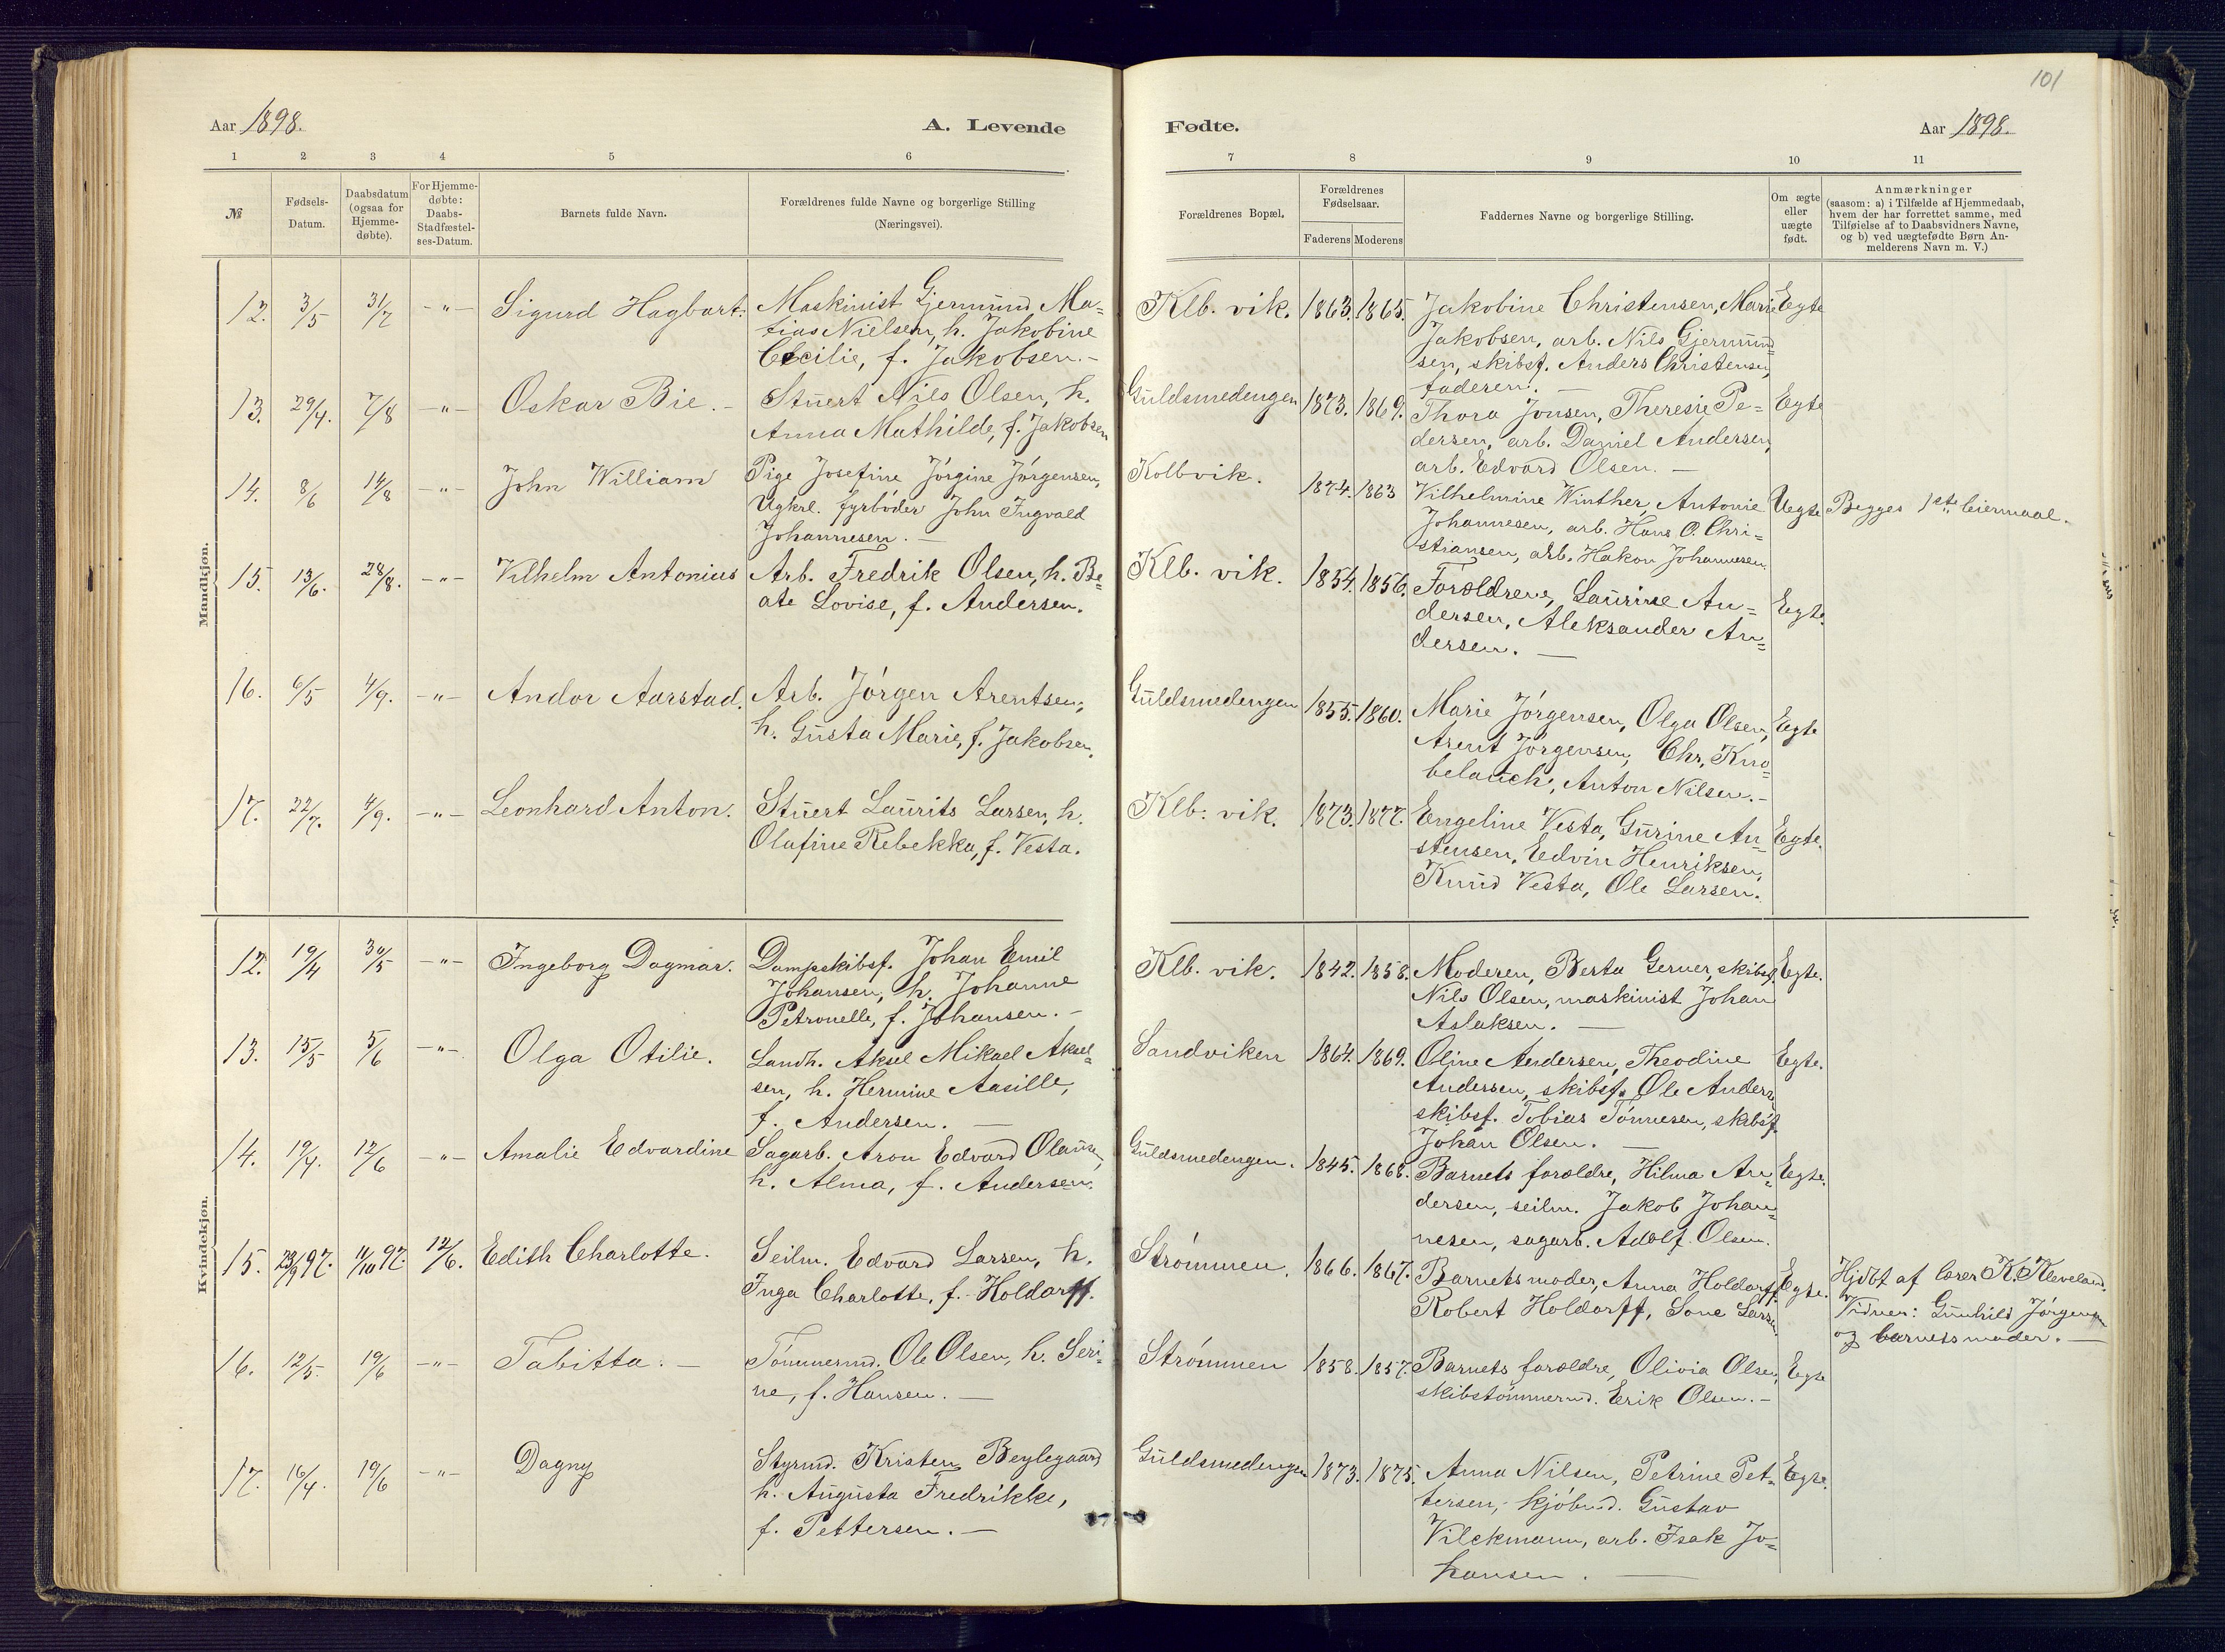 101
Aar 1898.
A. Levende
Fødte.
Aar 1898.
1 2 3 4 5 6 7 8 9 10 11
№
Fødsels-
Datum.
Daabsdatum
(ogsaa for
Hjemme-
døbte).
For Hjemme-
døbte:
Daabs-
Stadfæstel-
ses-Datum.
Barnets fulde Navn.
Forældrenes fulde Navne og borgerlige Stilling
(Næringsvei).
Forældrenes Bopæl.
Forældrenes
Fødselsaar.
Faderens Moderens
Faddernes Navne og borgerlige Stilling.
Om ægte
eller
uægte
født.
Anmærkninger
(saasom: a) i Tilfælde af Hjemmedaab,
hvem der har forrettet samme, med
Tilføielse af to Daabsvidners Navne,
og b) ved uægtefødte Børn An-
melderens Navn m. V.)
Mandkjøn.
12. 3/5 31/7 -"- Sigurd Hagbart. Maskinist Gjermund Ma-
tias Nielsen, h. Jakobine
Cecilie, f. Jakobsen.-
Klb. vik. 1863. 1865. Jakobine Christensen, Marie Egte
Jakobsen, arb. Nils Gjermund-
sen, skibsf. Anders Christensen,
faderen. -
13. 29/4. 7/8 -"- Oskar Bie. - Stuert Nils Olsen, h.
Anna Mathilde, f. Jakobsen
Guldsmedengen 1873. 1869. Thora Jonsen, Theresie Pe- Egte
dersen, arb. Daniel Andersen,
arb. Edvard Olsen. -
14. 8/6 14/8 -"- John William Pige Josefine Jørgine Jørgensen,
Ugkrl. fyrbøder John Ingvald
Johannesen. -
Kolbvik. 1874. 1863 Vilhelmine Winther, Antonie Uegte Begges 1ste leiermaal.
Johannesen, arb. Hans O. Chri-
stiansen, arb. Hakon Johannesen.
15. 13/6. 28/8. -"- Vilhelm Antonius Arb. Fredrik Olsen, h. Be-
ate Lovise, f. Andersen.
Klb. vik. 1854. 1856. Forældrene, Laurine An- Egte.
dersen, Aleksander An-
dersen. -
16. 6/5 4/9. -"- Andor Aarstad. Arb. Jørgen Arentsen,
h. Gusta Marie, f. Jakobsen.
Guldsmedengen 1855. 1860. Marie Jørgensen, Olga Olsen, Egte
Arent Jørgensen, Chr. Kno-
belauch, Anton Nilsen.-
17. 22/7. 4/9. -"- Leonhard Anton. Stuert Laurits Larsen, h.
Olafine Rebekka, f. Vesta.
Klb. vik. 1873. 1877. Engeline Vesta, Gurine An- Egte.
stensen, Edvin Henriksen,
Knud Vesta, Ole Larsen.
Kvindekjøn.
12. 19/4 30/5 -"- Ingeborg Dagmar. Dampskibsf. Johan Emil
Johansen, h. Johanne
Petronelle, f. Johansen. -
Klb. vik. 1842. 1858. Moderen, Berta Gerner, skibsf. Egte.
Nils Olsen, maskinist Johan
Aslaksen. -
13. 15/5 5/6 -"- Olga Otilie. Landh. Aksel Mikael Aksel-
sen, h. Hermine Aasille,
f. Andersen. -
Sandviken 1864. 1869. Oline Andersen, Theodine Egte.
Andersen, skibsf. Ole Andersen
skibsf. Tobias Tønnesen, skibsf.
Johan Olsen. -
14. 19/4. 12/6 -"- Amalie Edvardine Sagarb. Aron Edvard Olausen,
h. Alma, f. Andersen.
Guldsmedengen. 1845. 1868. Barnets forældre, Hilma An- Egte.
dersen, seilm. Jakob Johan-
nesen, sagarb. Adolf Olsen.
15. 23/9 97. 11/10 97. 12/6. Edith Charlotte. Seilm. Edvard Larsen, h.
Inga Charlotte, f. Holdorff.
Strømmen. 1866. 1867. Barnets moder, Anna Holdorff, Egte. Hjdbt af lærer K. Kleveland.
Robert Holdorff, Lone Larsen. Vidner: Gunhild Jørgensen
og barnets moder. -
16. 12/5. 19/6 -"- Tabitta. - Tømmermd. Ole Olsen, h. Seri-
ne, f. Hansen. -
Strømmen 1858. 1857. Barnets forældre, Olivia Olsen, Egte
skibstømmermd. Erik Olsen. -
17. 16/4. 19/6 -"- Dagny Styrmd. Kristen Beylegaard
h. Augusta Fredrikke,
f. Pettersen. -
Guldsmedengen 1873. 1875. Anna Nilsen, Petrine Pet- Egte.
tersen, kjøbmd. Gustav
Vilckmann, arb. Isak Jo-
hansen. -